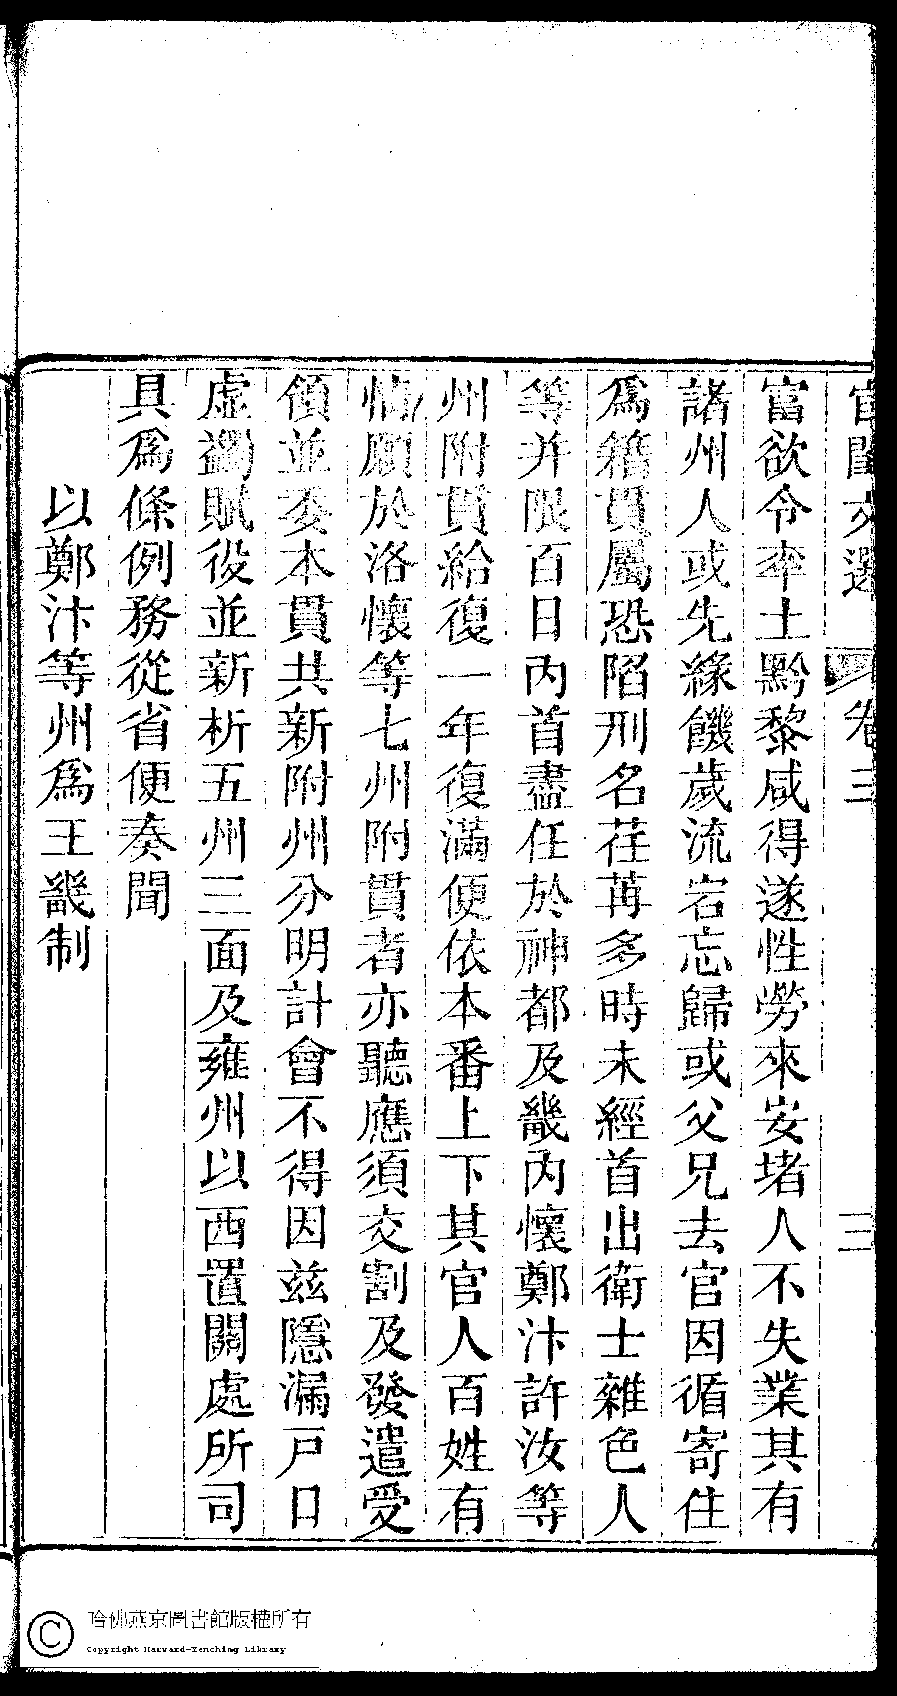 宫閨文選 卷三 三
富欲令率土黔黎咸得遂性勞來安堵人不失業其有
諸州人或先緣饑歲流宕忘歸或父兄去官因循寄住
爲籍貫屬恐陷刑名荏苒多時未經首出衛士雜色人
等并限百日内首盡任於神都及畿内懷鄭汴許汝等
州附貫給復一年復滿便依本番上下其官人百姓有
情願於洛懷等七州附貫者亦聽應須交割及發遣受
領並委本貫共新附州分明計會不得因兹隱漏戸口
虚蠲賦役並新析五州三面及雍州以西置關處所司
具爲條例務從省便奏聞
以鄭汴等州爲王畿制
哈佛燕京圖書館版權所有
Copyright Harvard-Yenching Library